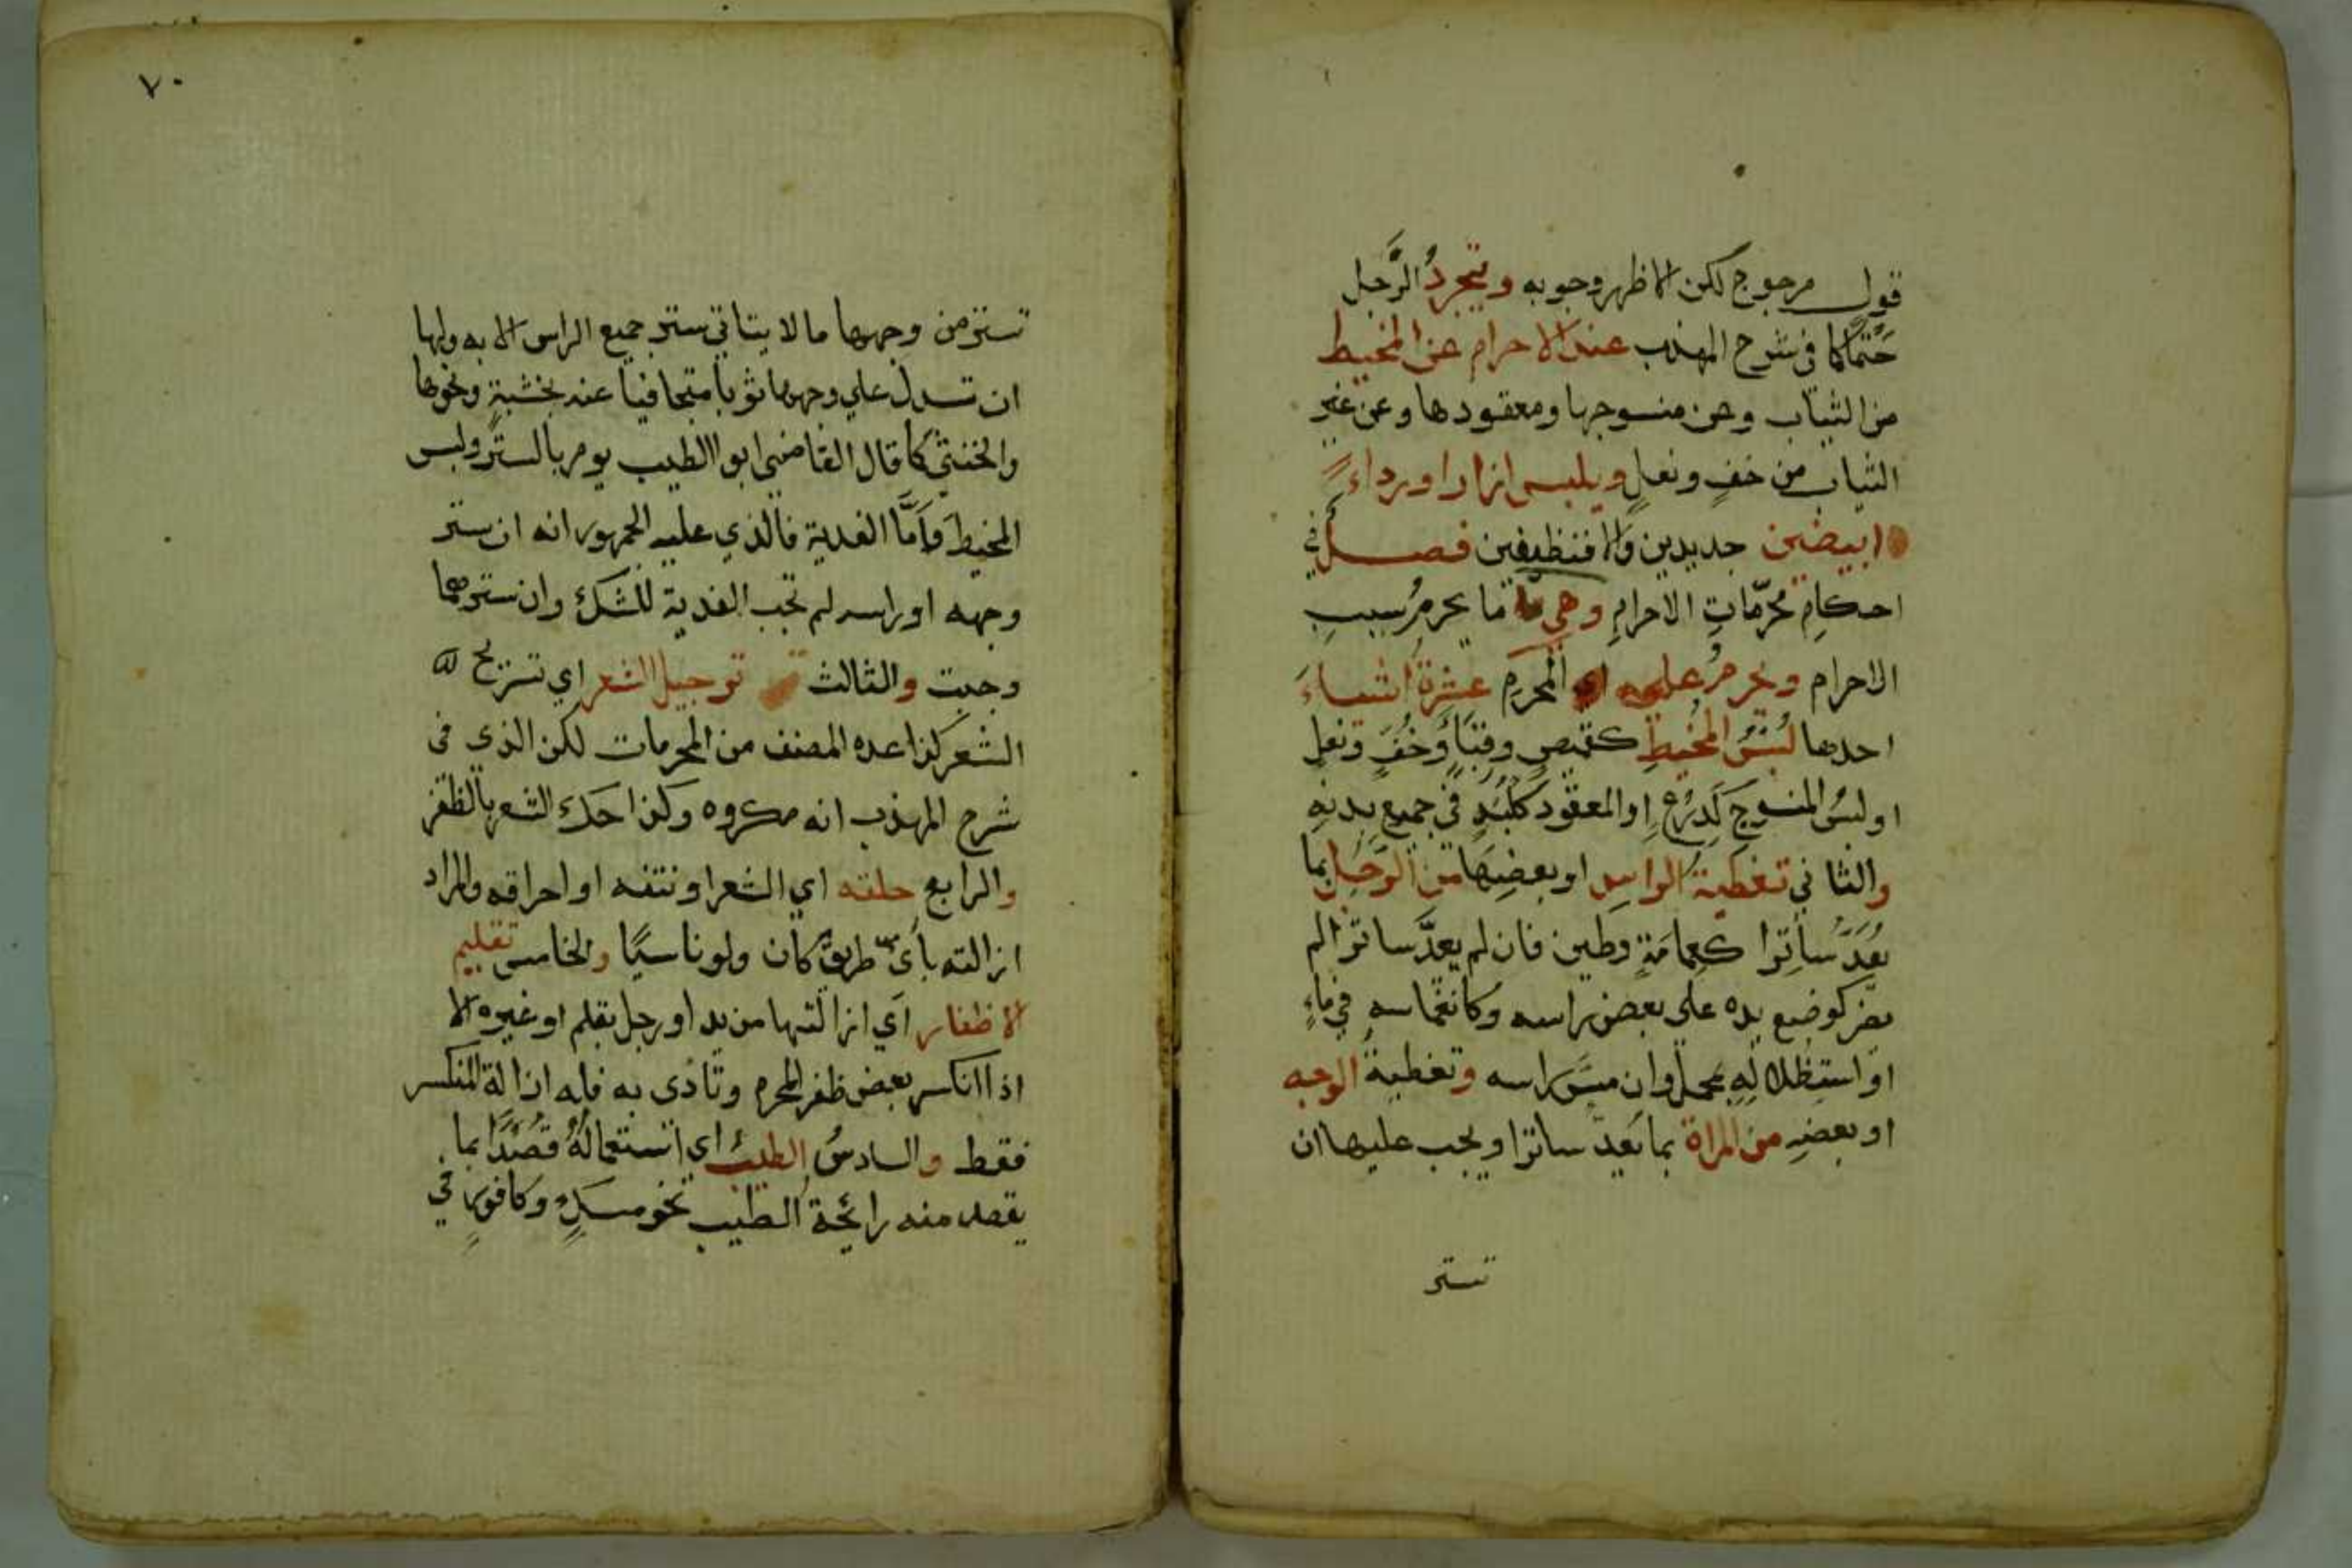 قول مرجوح لكن الاظهر وجوبه ويتجردُ الرَّجل
حَتمًا كما في شرح المهذب عند الاحرام عن المخيط
من الثياب وعن منسوجها ومعقودها وعن غير
الثياب من خفٍ ونعلٍ ويلبس ازارا ورداءً
ابيضين جديدين والا فنظيفين فصل في
احكامِ محرّماتِ الاحرامِ وهي ما يحرمُ بسببِ
الاحرام ويحرمُ على المحرم عشرةُ اشياءَ
احدها لُبْسُ المخيطِ كقميصٍ وقباءٍ وخُفٍ ونعلٍ
او لبسُ المنسوج كَدِرْعٍ او المعقود كلَبَدٍ في جميع بدنهِ
والثاني تغطيةُ الراسِ او بعضِها من الرَّجلِ بما
يُعَدُّ ساتِرًا كعِمامَةٍ وطين فان لم يعدَّ ساترا لم
يضر كوضع يده على بعض راسه وكانغماسهِ في ماءٍ
او استظلالهِ بمحملٍ وان مسَّ راسه وتغطيةُ الوجه
او بعضهِ من المراة بما يُعدّ ساترا ويجب عليها ان
تستر
٧٠
تستر من وجهها ما لا يتاتي ستر جميع الراس الا به ولها
ان تسدل علي وجهها ثوبا متجافيا عنه بخشبةٍ ونحوها
والخنثي كما قال القاضي ابو الطيب يومر بالستر ولبس
المخيط وامَّا الفدية فالذي عليه الجمهور انه ان ستر
وجهه او راسه لم تجب الفدية للشك وان سترهما
وجبت والثالث ترجيل الشعر اي تسريح
الشعر كذا عده المصنف من المحرمات لكن الذي في
شرح المهذب انه مكروه وكذا حك الشعر بالظفر
والرابع حلقه اي الشعر او نتفه او احراقه والمراد
ازالته باي طريق كان ولو ناسيًا والخامس تقليم
الاظفار اي ازالتها من يد او رجل بقلم او غيره الا
اذا انكسر بعض ظفر المحرم وتاذي به فله ازالة المنكسر
فقط والسادسُ الطيب اي استعمالهُ قصْدًا بما
يقصد منه رائحة الطيب نحو مسكٍ وكافورٍ في